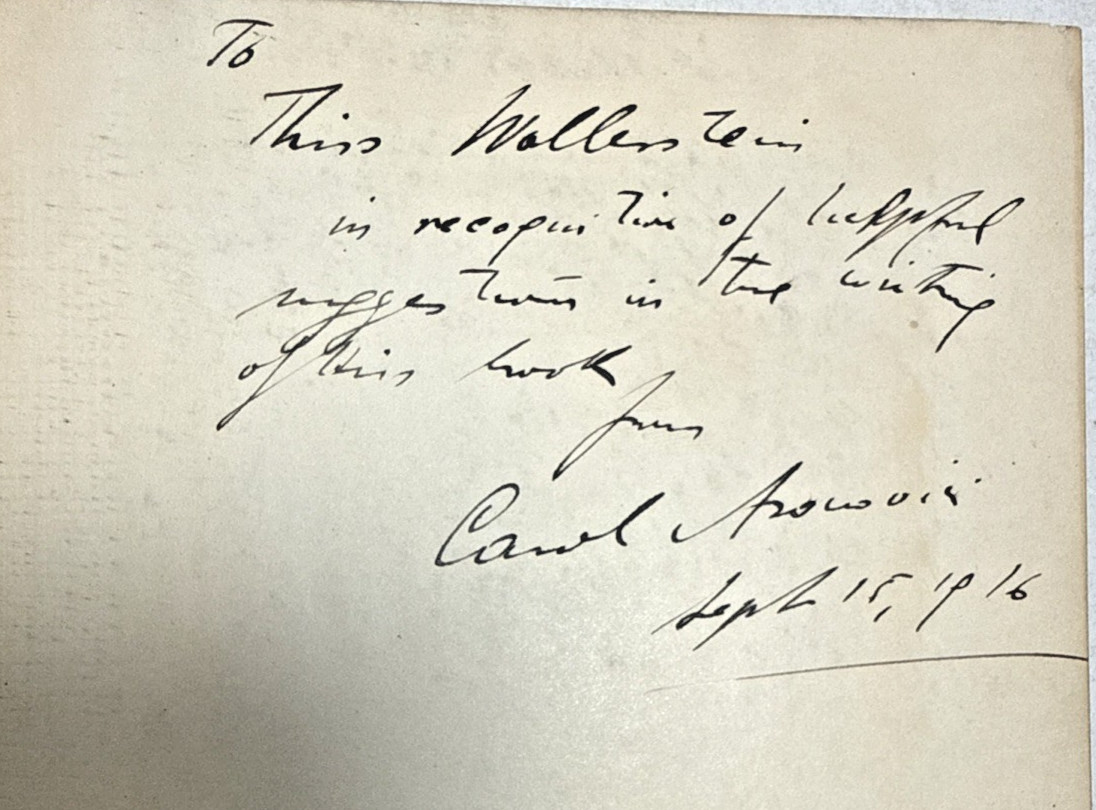 To
Miss Wallerstein
in recognition of helpful
suggestions in the writing
of this book
from
Carol Aronovici
Sept 15, 1916